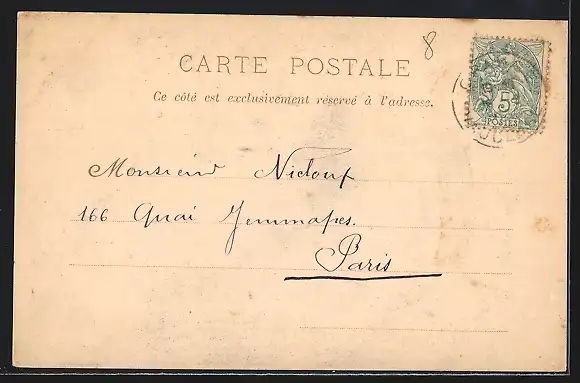 8
CARTE POSTALE
Ce côté est exclusivement réservé à l'adresse.
5
POSTES
Monsieur Niclouf
166 Quai Jemmapes.
Paris